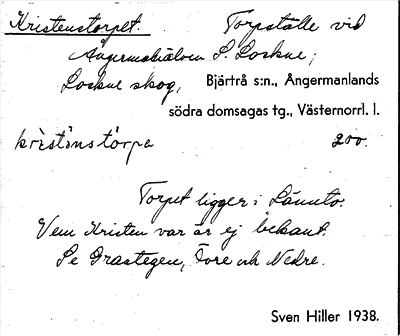 Kristenstorpet. Torpställe vid
Ångermanälven S. Lockne;
Lockne skog, Bjärtrå s:n., Ångermanlands
södra domsagas tg., Västernorrl. l.
krìstènstòrpa 200.
Torpet ligger i Lännsto.
Vem Kristen var är ej bekant.
Se Grastegen, Övre och Nedre.
Sven Hiller 1938.